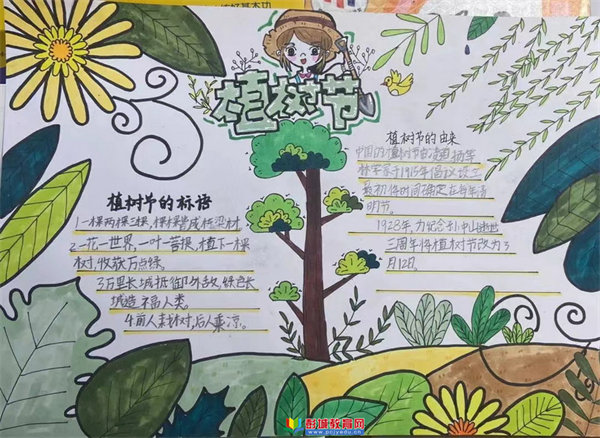 植树节
植树节的标语
1.一棵两棵三棵,棵棵皆成栋梁材
2.一花一世界,一叶一菩提,植下一棵
树,收获万点绿。
3.万里长城抵御外敌,绿色长
城造福人类。
4.前人栽树,后人乘凉。
植树节的由来
中国的植树节由凌道扬等
林学家于1915年倡议设立
最初将时间确定在每年清
明节。
1928年,为纪念孙中山逝世
三周年将植树节改为3
月12日。
彭城教育网
www.pcjyedu.cn